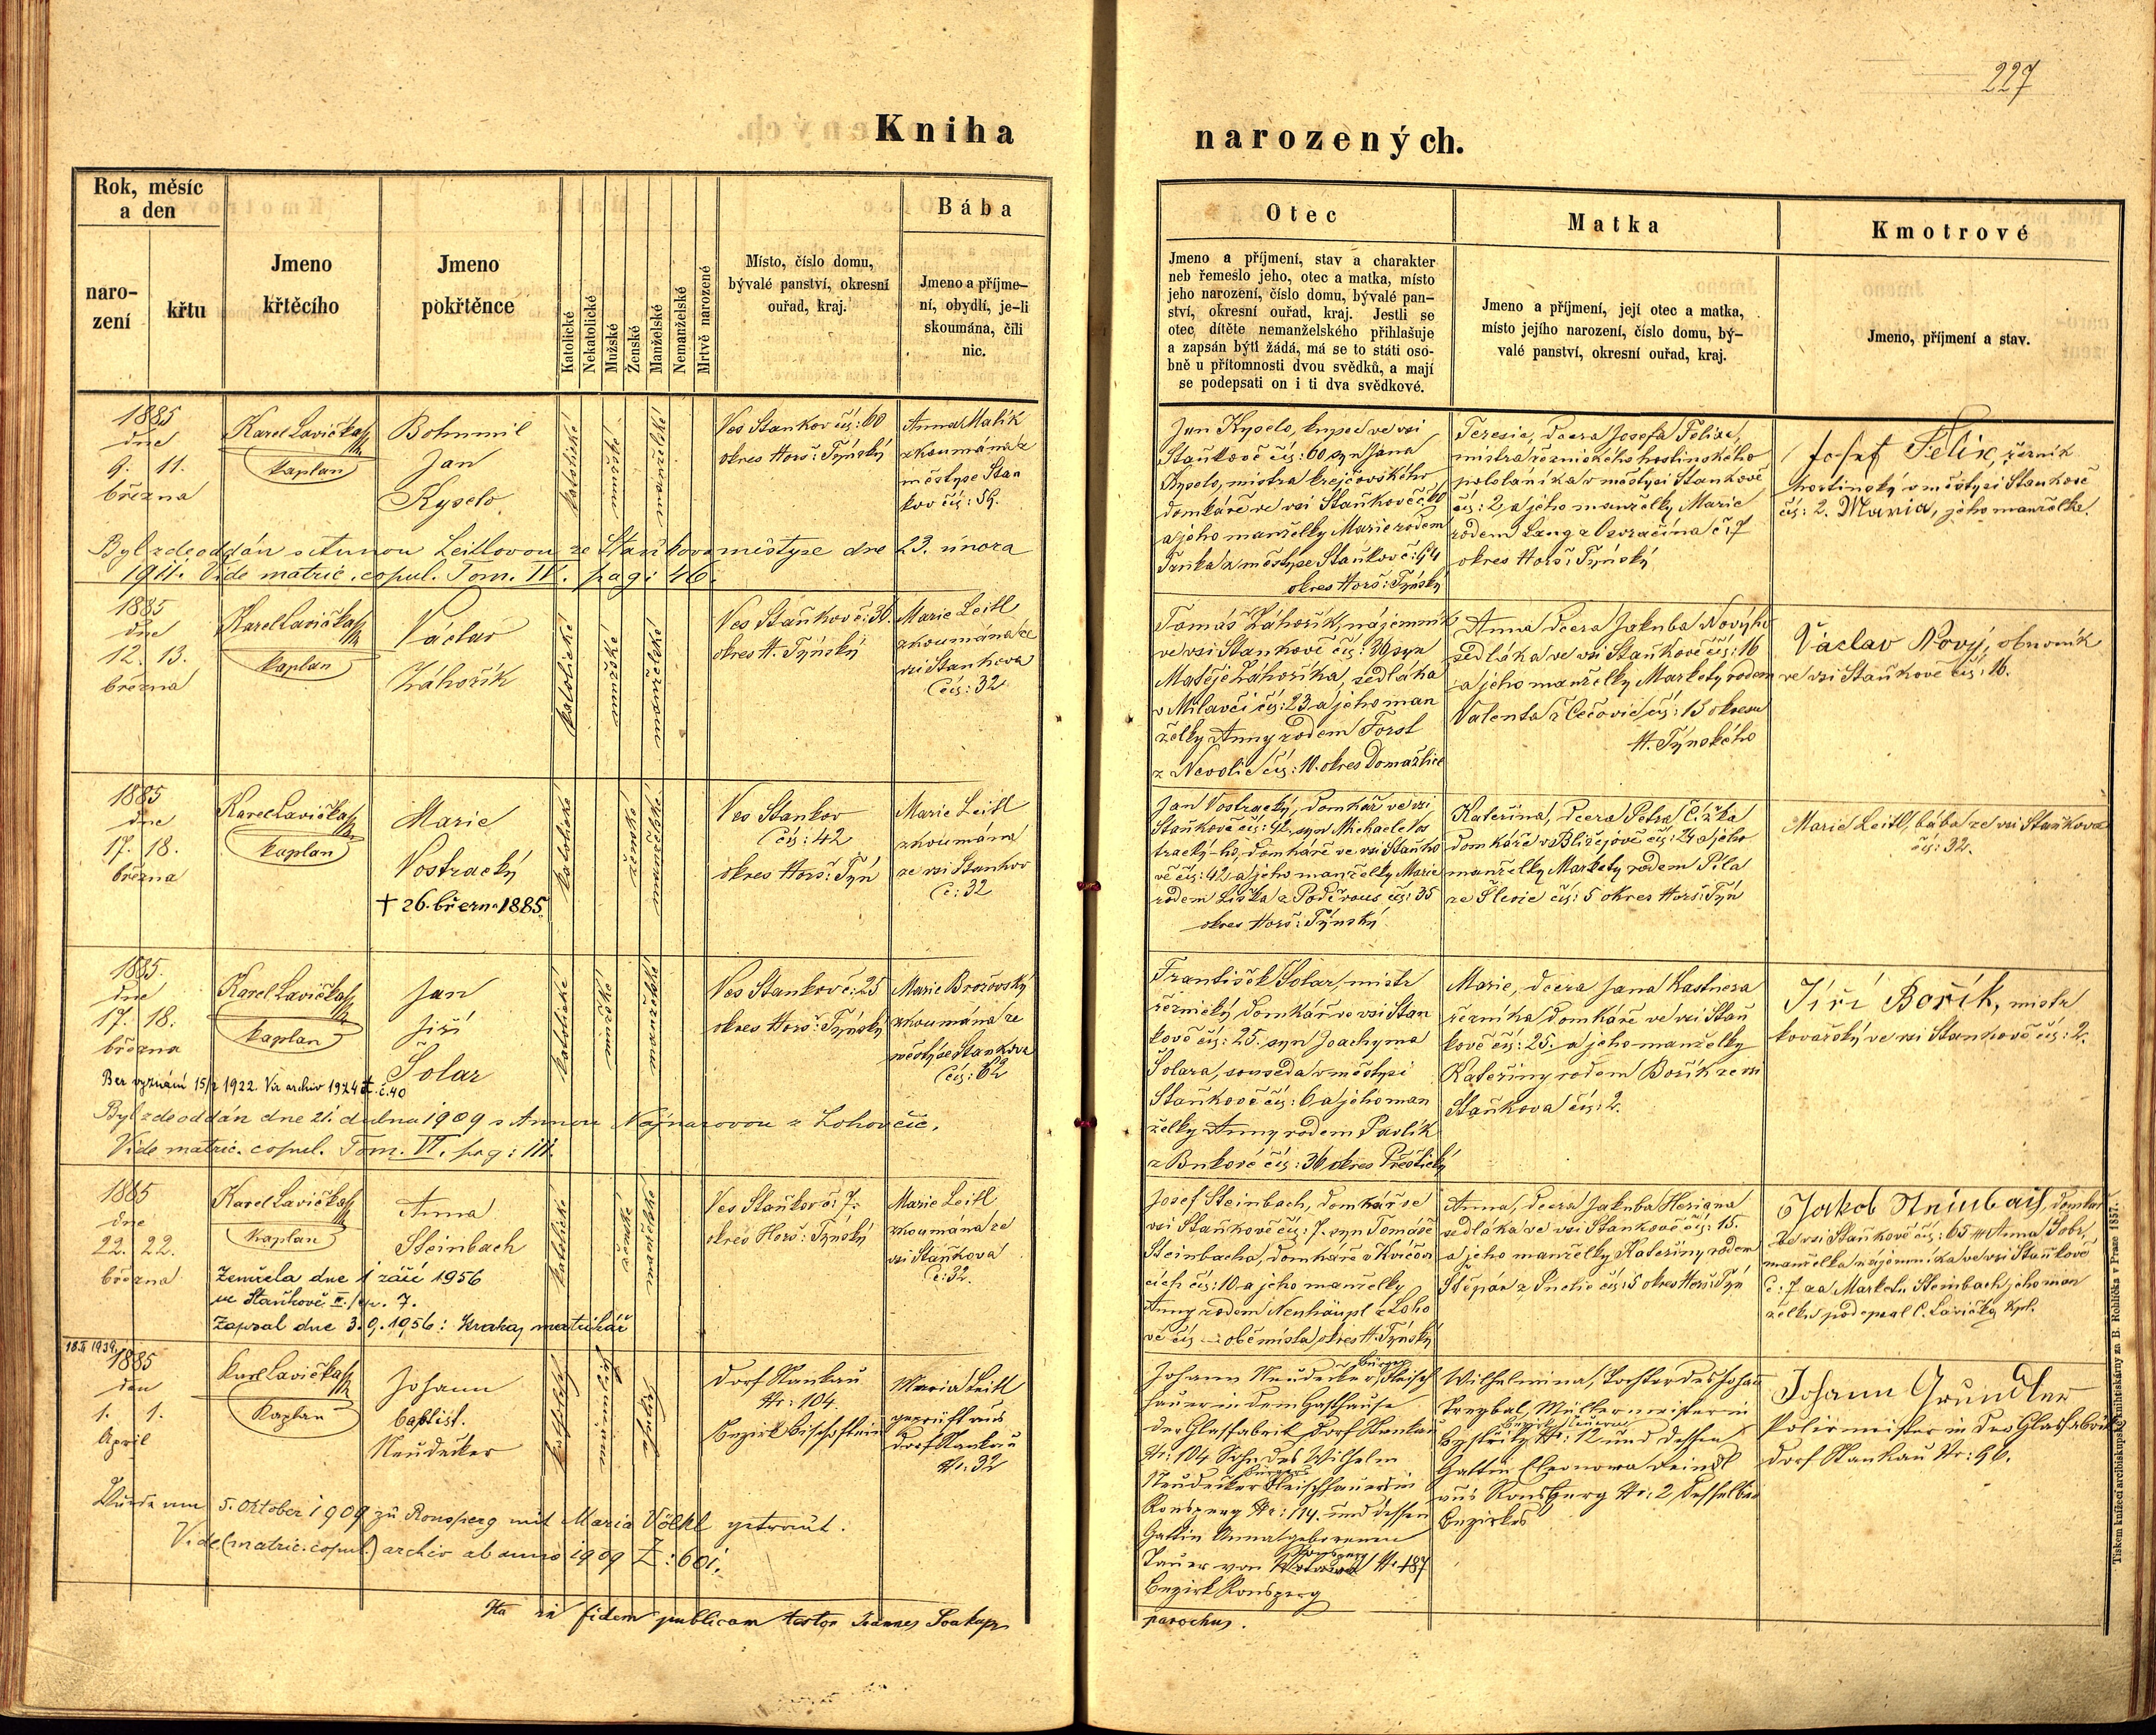 227
Kniha
narozených.
Rok, měsíc
a den
naro-
zení
křtu
Jmeno
křtěcího
Jmeno
pokřtěnce
Katolické
Nekatolické
Mužské
Ženské
Manželské
Nemanželské
Mrtvě narozené
Místo, číslo domu,
bývalé panství, okresní
ouřad, kraj.
Bába
Jmeno a příjme-
ní, obydlí, je-li
skoumána, čili
nic.
Otec
Jmeno a příjmení, stav a charakter
neb řemeslo jeho, otec a matka, místo
jeho narození, číslo domu, bývalé pan-
ství, okresní ouřad, kraj. Jestli se
otec dítěte nemanželského přihlašuje
a zapsán býti žádá, má se to státi oso-
bně u přítomnosti dvou svědků, a mají
se podepsati on i ti dva svědkové.
Matka
Jmeno a příjmení, její otec a matka,
místo jejího narození, číslo domu, bý-
valé panství, okresní ouřad, kraj.
Kmotrové
Jmeno, příjmení a stav.
1885
dne
9. 11.
března
Karel Lavička
kaplan
Bohumil
Jan
Kyselo
katolické
mužské
manželské
Ves Stankov čís: 60
okres Horš: Týnský
Anna Malik
zkoumána z
městyse Stan
kov čís: 59.
Jan Kyselo, kupec ve vsi
Staňkově čís: 60 syn Jana
Kyselo, mistra krejčovského
domkáře ve vsi Staňkově č. 60
a jeho manželky Marie rodem
Tanka z městyse Staňkov č: 94
okres Horš: Týnský
Teresie, dcera Josefa Felixe,
mistra řeznického hostinského
pololáníka v městysi Staňkově
čís: 2, a jeho manželky Marie
rodem Lang z Ozračína č: 7
okres Horš: Týnský
Josef Felix, řezník
hostinský v městysi Stankově
čís: 2. Maria, jeho manželka.
Byl zde oddán s Annou Leitlovou ze Staňkova městyse dne 23. února
1911. Vide matric. copul. Tom. IV. pag: 46.
1885
dne
12. 13.
března
Karel Lavička
kaplan
Václav
Záhořík
katolické
mužské
manželské
Ves Staňkov č: 36.
okres H. Týnský
Marie Leitl
zkoumána ze
vsi Stankova
čís: 32
Tomáš Záhořík, nájemník
ve vsi Stankově čís: 36 syn
Matěje Záhoříka, sedláka
v Milavči čís: 23. a jeho man
želky Anny rodem Forst
z Nevolic čís: 10. okres Domažlice
Anna dcera Jakuba Nového
sedláka ve vsi Staňkově čís: 16
a jeho manželky Markety rodem
Valenta z Čečovic čís: 13 okresu
H. Týnského
Václav Nový, obuvník
ve vsi Staňkově čís: 16.
1885
dne
17. 18.
března
Karel Lavička
kaplan
Marie
Vostracký
† 26. března 1885
katolické
ženské
manželské
Ves Stankov
čís: 42
okres Horš: Týn
Marie Leitl
zkoumána
ze vsi Stankov
č: 32
Jan Vostracký, domkář ve vsi
Staňkově čís: 42, syn Michaele Vos
tracký-ho, domkáře ve vsi Staňko
vě čís: 42 a jeho manželky Marie
rodem Liška z Poděvous čís: 35
okres Horš: Týnský
Kateřina, dcera Petra Čížka
domkáře v Blížejově čís: 24 a jeho
manželky Markety rodem Píla
ze Šlovic čís: 5 okres Horš: Týn
Marie Leitl, bába ze vsi Staňkova
čís: 32.
1885.
dne
17. 18.
března
Karel Lavička
kaplan
Jan
Jiří
Šolar
katolické
mužské
manželské
Ves Stankov č: 25
okres Horš: Týnský
Marie Brožovský
zkoumána ze
městyse Stankova
čís: 62
František Šolar, mistr
řeznický, domkář ve vsi Stan
kově čís: 25. syn Joachyma
Šolara, souseda v městysi
Staňkově čís: 6, a jeho man
želky Anny rodem Pavlík
z Bukové čís: 36 okres Přeštický
Marie, dcera Jana Kastnera
řezníka domkáře ve vsi Staň
kově čís: 25. a jeho manželky
Kateřiny rodem Bořík ze vsi
Staňkova čís: 2.
Jiří Bořík, mistr
kovářský ve vsi Stankově čís: 2.
Bez vyznání 15/2 1922. Viz archiv 1924 č. 40
Byl zde oddán dne 21. dubna 1909 s Annou Najmarovou z Lohovčic.
Vide matric. copul. Tom. VI. pag: 111.
1885
dne
22. 22.
března
Karel Lavička
Kaplan
Anna
Steinbach
katolické
ženské
manželské
Ves Staňkov č: 7.
okres Horš: Týnský
Marie Leitl
zkoumána ze
vsi Staňkova
č: 32.
Josef Steinbach, domkář ve
vsi Staňkově čís: 7. syn Tomáše
Steinbacha, domkáře v Kvíčov
cích čís: 10. a jeho manželky
Anny rodem Neuhäupl z Loho
vé čís — obě místa okres H. Týnský
Anna, dcera Jakuba Heriana
sedláka ve vsi Stankově čís: 15.
a jeho manželky Kateřiny rodem
Štěpán z Puclic čís: 5 okres Horš: Týn
Jakob Steinbach, domkář
ve vsi Staňkově čís: 65 Anna Sobr,
manželka nájemníka ve vsi Staňkově
č: 7 za Marketu Steinbach jeho man
želku podepsal C. Lavička kpl.
Zemřela dne 1 září 1956
ve Staňkově II. / čp. 7.
Zapsal dne 3. 9. 1956: matrikář
18.II 1939.
1885
den
1. 1.
April
Karl Lavička
Kaplan
Johann
baptist.
Neudecker
katholisch
männlich
ehelich
Dorf Stankau
Nr: 104.
Bezirk Bischofteinitz
Maria Leitl
geprüft aus
Dorf Stankau
Nr: 32
Johann Neudecker, Bürger, Fleisch
hauer in dem Gasthause
der Glasfabrik, Dorf Stankau
Nr: 104 Sohn des Wilhelm
Neudecker Bürgers Fleischhauers in
Ronsperg Nr: 114. und dessen
Gattin Anna geborenen
Bauer von Ronsperg Nr: 187
Bezirk Ronsperg
Wilhelmina, Tochter des Johann
Trezbal, Müllermeister in
Bystřitz Bezirk Neuern Nr: 12 und dessen
Gattin Eleonora Deindl
aus Ronsperg Nr: 2, desselben
Bezirkes
Johann Gründler
Polirmeister in der Glasfabrik
Dorf Stankau Nr: 96.
Wurde am 5. Oktober 1909 zu Ronsperg mit Maria Völkl getraut.
Vide (matric. copul.) archiv ab anno 1909 Z: 601.
Ita in fidem publicam testor Joannes Soukup
parochus.
Tiskem knížecí arcibiskupské knihtiskárny za B. Rohlíčka v Praze 1857.